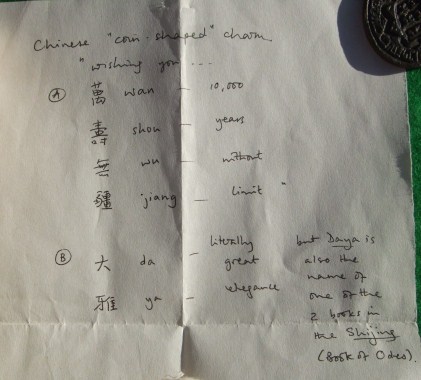 Chinese "coin-shaped" charm
"wishing you ...
Ⓐ 萬 wan — 10,000
壽 shou — years
無 wu — without
疆 jiang — limit "
Ⓑ 大 da — literally great
雅 ya — elegance
but Daya is
also the
name of
one of the
2 books in
the Shijing
(Book of Odes).